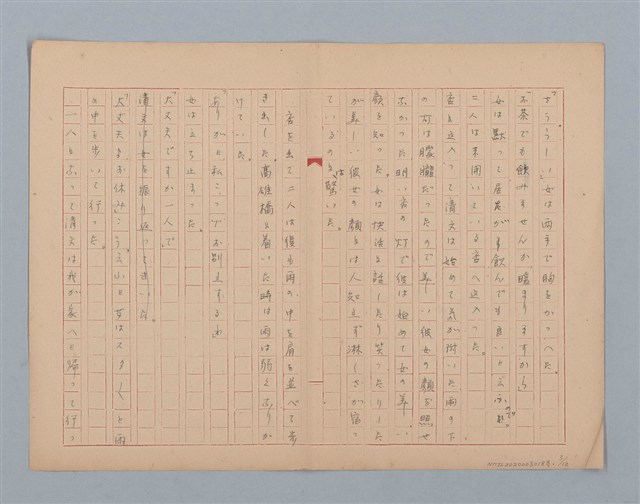 さう、うしい」女は両手で胸をかゝへた。
「お茶でも飲みませんか暖まりますから」
女は黙って居たが「飲んでも良い」と云ふ
二人は未だ開いている店へ這入った。
店を這入って清文は始めて気が附いた雨の下
の灯は朦朧だったので美しい彼女の顔を照せ
なかった明い店の灯で彼は始めて女の美しい
顔を知った女は快活に話したり笑ったりした
が美しい彼女の顔には人知れず淋しさが宿っ
ているのには驚いた。
店を出て二人は僅な雨の中を肩を並べて歩
き出した高雄橋に着いた時は雨は弱くふりか
けていた。
「ありがと私こゝでお別れするわ」
女は立ち止まった。
「大丈夫ですか一人で」
清文は女を振り返ってきいた。
「大丈夫よお休み」さう云ふと女はスタ〱と雨
の中を歩いて行った。
一人となって清文は我が家へと帰って行っ